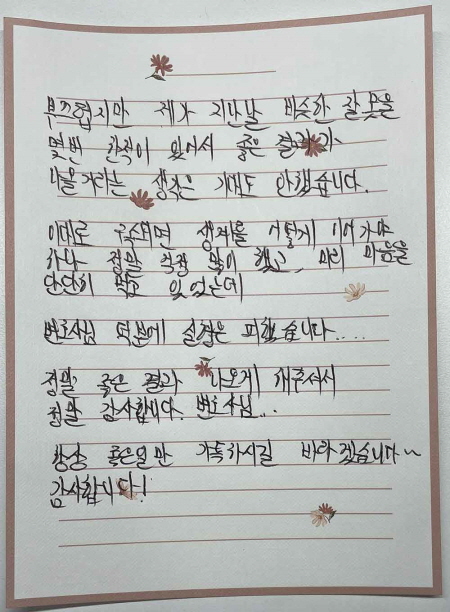 부끄럽지만 제가 지난날 비슷한 잘못을
몇번 한적이 있어서 좋은 결과가
나올거라는 생각은 기대도 안했습니다.
이대로 구속되면 생계를 어떻게 이어가야
하나 정말 걱정 많이 했고, 미리 마음을
단단히 먹고 있었는데
변호사님 덕분에 실형은 피했습니다....
정말 좋은 결과 나오게 해주셔서
정말 감사합니다. 변호사님...
항상 좋은일만 가득하시길 바라겠습니다~
감사합니다!